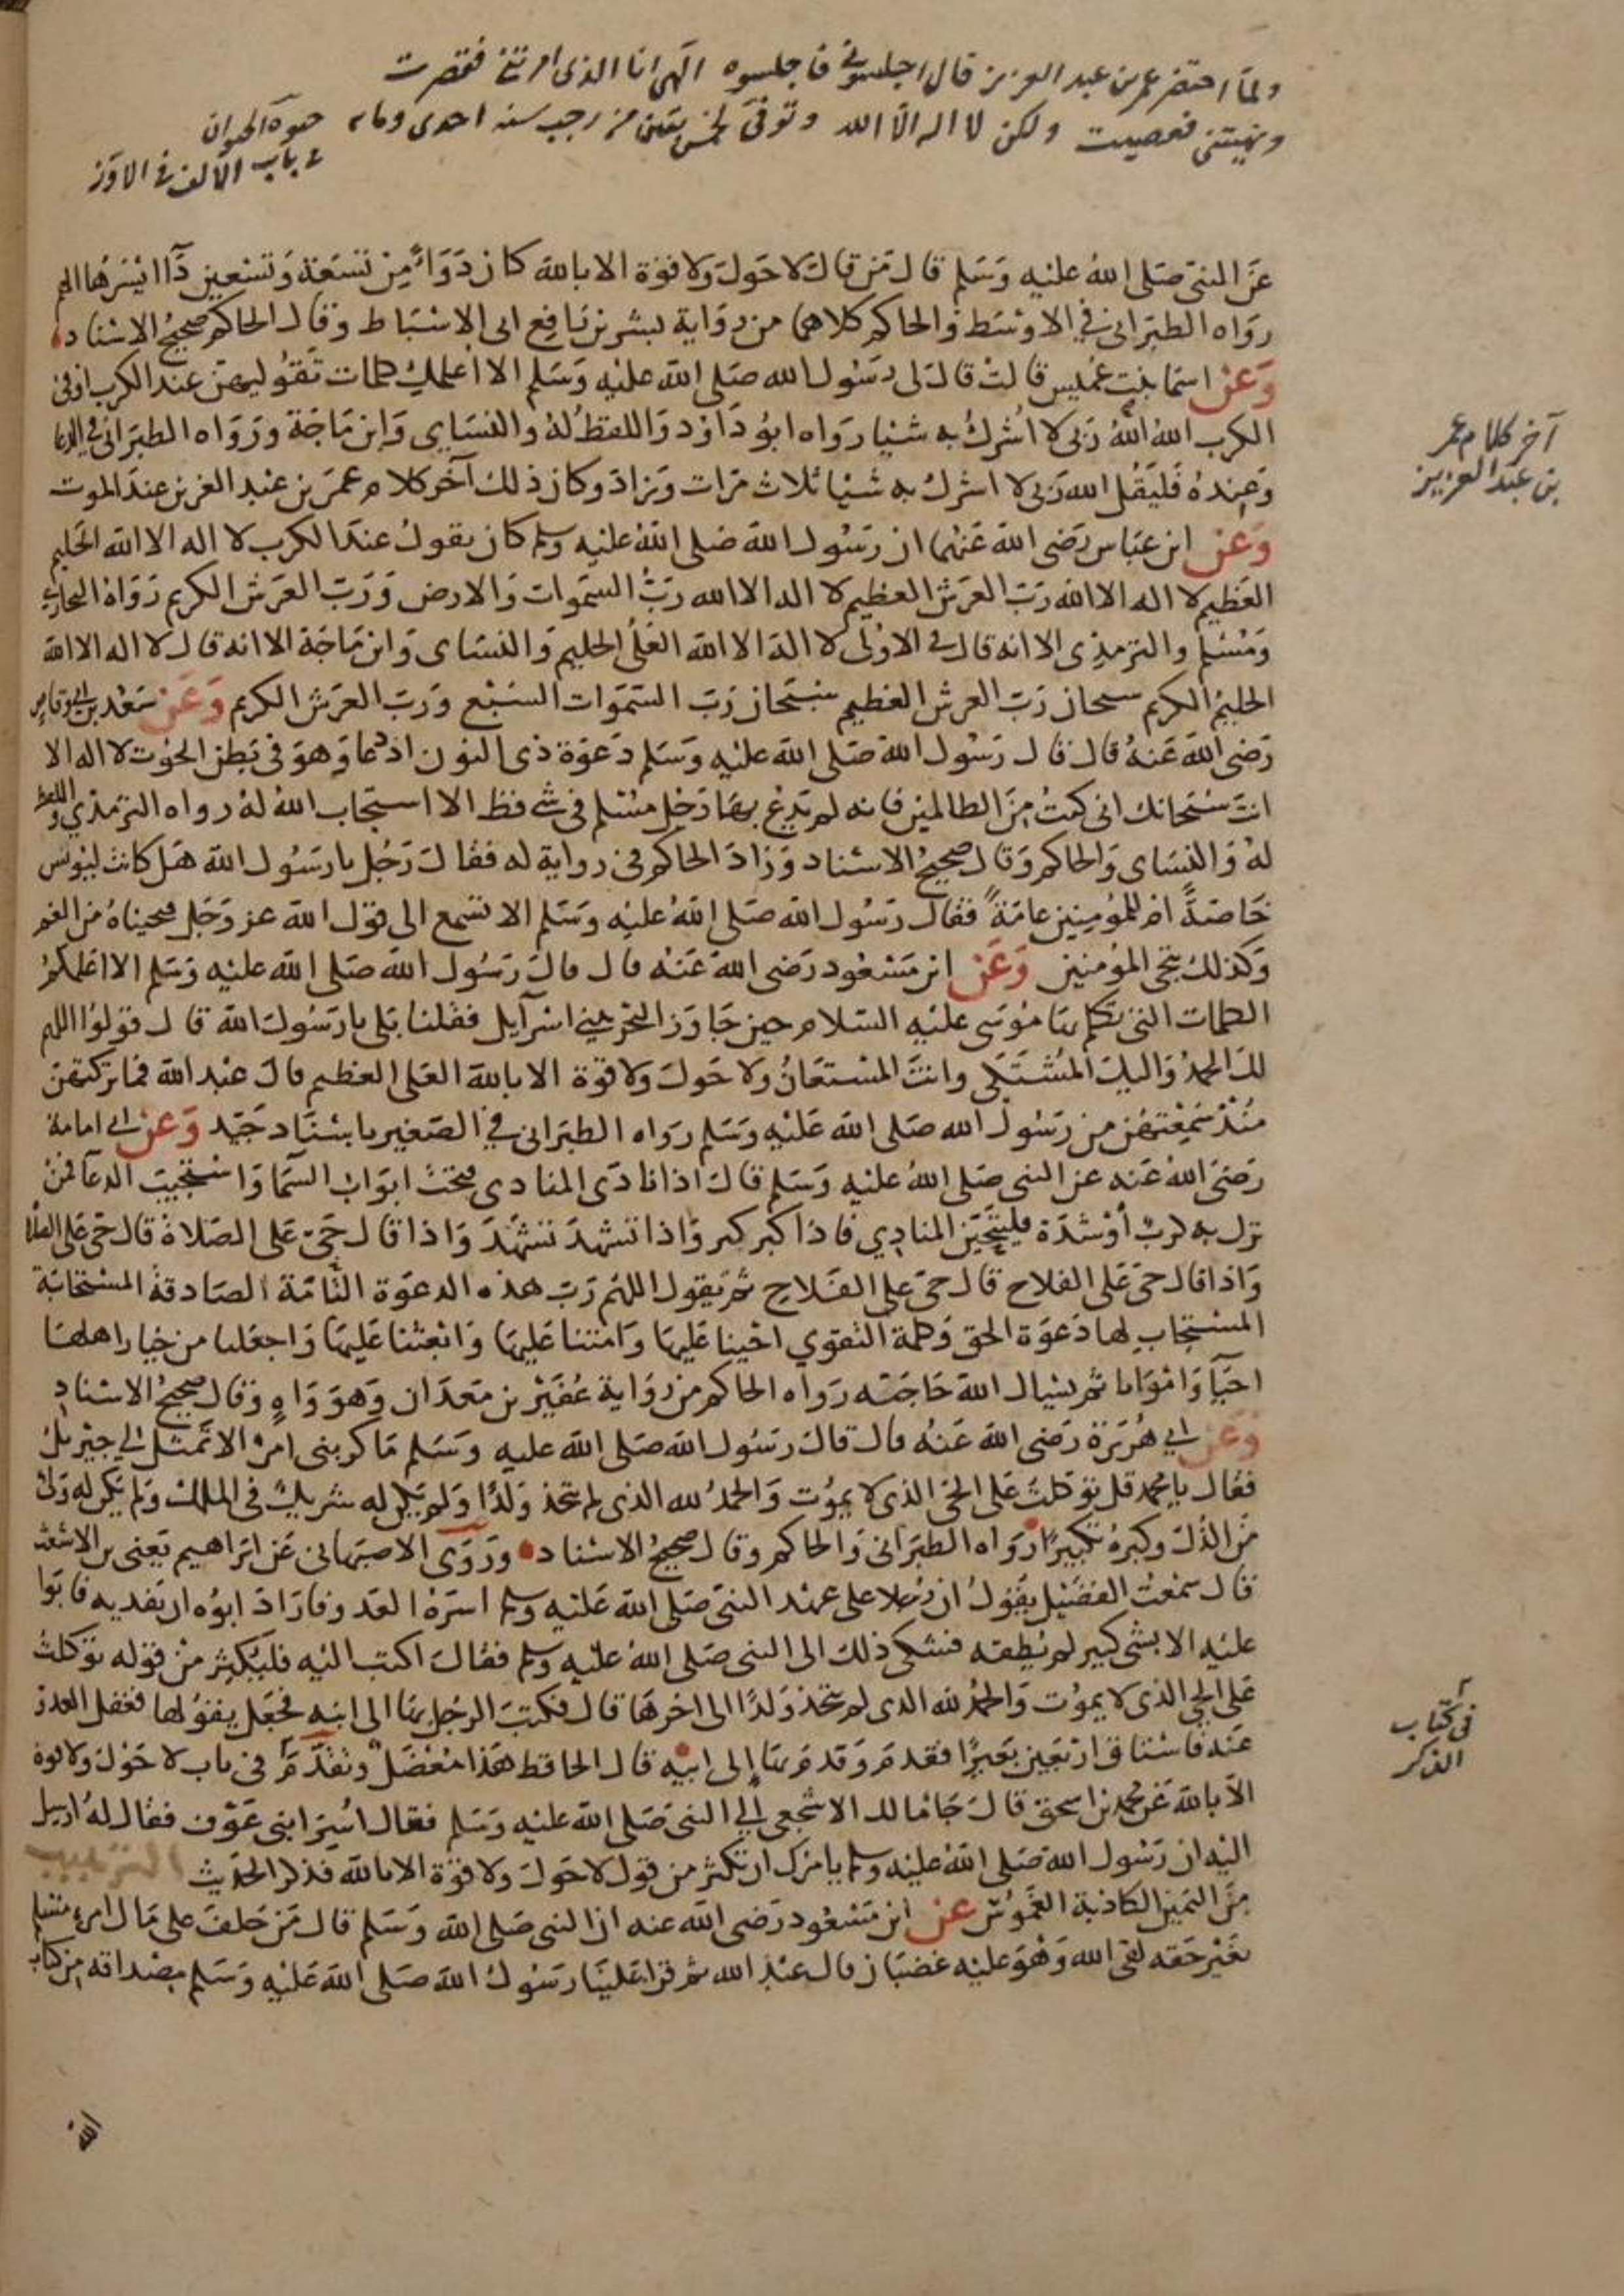 ولما احتضر عمر بن عبد العزيز قال اجلسوني فاجلسوه الهي انا الذي امرتني فقصرت
ونهيتني فعصيت ولكن لا اله الا الله وتوفي لخمس بقين من رجب سنة احدى ومايه حيوة الحيوان
في باب الالف في الاوز
عن النبي صلى الله عليه وسلم قال من قال لا حول ولا قوة الا بالله كان دواء من تسعة وتسعين داا ايسرها الهم
رواه الطبراني في الاوسط والحاكم كلاهما من رواية بشر بن نافع ابي الاسباط وقال الحاكم صحيح الاسناد
وعن اسما بنت عميس قالت قال لي رسول الله صلى الله عليه وسلم الا اعلمك كلمات تقوليهن عند الكرب او في
الكرب الله الله ربي لا اشرك به شيا رواه ابو داود واللفظ له والنساي وابن ماجة ورواه الطبراني في الدعا
وعنده فليقل الله ربي لا اشرك به شيا ثلاث مرات وزاد وكان ذلك آخر كلام عمر بن عبد العزيز عند الموت
آخر كلام عمر
بن عبد العزيز
وعن ابن عباس رضي الله عنهما ان رسول الله صلى الله عليه وسلم كان يقول عند الكرب لا اله الا الله الحليم
العظيم لا اله الا الله رب العرش العظيم لا اله الا الله رب السموات والارض ورب العرش الكريم رواه البخاري
ومسلم والترمذي الا انه قال في الاولى لا اله الا الله العلي الحليم والنساي وابن ماجة الا انه قال لا اله الا الله
الحليم الكريم سبحان رب العرش العظيم سبحان رب السموات السبع ورب العرش الكريم وعن سعد بن ابي وقاص
رضي الله عنه قال قال رسول الله صلى الله عليه وسلم دعوة ذي النون اذ دعا وهو في بطن الحوت لا اله الا
انت سبحانك اني كنت من الظالمين فانه لم يدع بها رجل مسلم في شي قط الا استجاب الله له رواه الترمذي واللفظ
له والنساي والحاكم وقال صحيح الاسناد وزاد الحاكم في رواية له فقال رجل يا رسول الله هل كانت ليونس
خاصة ام للمؤمنين عامة فقال رسول الله صلى الله عليه وسلم الا تسمع الى قول الله عز وجل فنجيناه من الغم
وكذلك ننجي المؤمنين وعن ابن مسعود رضي الله عنه قال قال رسول الله صلى الله عليه وسلم الا اعلمكم
الكلمات التي تكلم بها موسى عليه السلام حين جاوز البحر ببني اسرآيل فقلنا بلى يا رسول الله قال قولوا اللهم
لك الحمد واليك المشتكى وانت المستعان ولا حول ولا قوة الا بالله العلي العظيم قال عبد الله فما تركتهن
منذ سمعتهن من رسول الله صلى الله عليه وسلم رواه الطبراني في الصغير باسناد جيد وعن ابي امامة
رضي الله عنه عن النبي صلى الله عليه وسلم قال اذا نادى المنادي فتحت ابواب السما واستجيب الدعا فمن
نزل به كرب او شدة فليتحين المنادي فاذا كبر كبر واذا تشهد تشهد واذا قال حي على الصلاة قال حي على الصلاة
واذا قال حي على الفلاح قال حي على الفلاح ثم يقول اللهم رب هذه الدعوة التامة الصادقة المستجابة
المستجاب لها دعوة الحق وكلمة التقوى احينا عليها وامتنا عليها وابعثنا عليها واجعلنا من خيار اهلها
احيآ وامواتا ثم يسال الله حاجته رواه الحاكم من رواية عفير بن معدان وهو واه وقال صحيح الاسناد
وعن ابي هريرة رضي الله عنه قال قال رسول الله صلى الله عليه وسلم ما كربني امر الا تمثل لي جبريل
فقال يا محمد قل توكلت على الحي الذي لا يموت والحمد لله الذي لم يتخذ ولدا ولم يكن له شريك في الملك ولم يكن له ولي
من الذل وكبره تكبيرا رواه الطبراني والحاكم وقال صحيح الاسناد وروى الاصبهاني عن ابراهيم يعني بن الاشعث
قال سمعت الفضيل يقول ان رجلا على عهد النبي صلى الله عليه وسلم اسره العدو فاراد ابوه ان يفديه فابوا
عليه الا بشي كبير لم يطقه فشكى ذلك الى النبي صلى الله عليه وسلم فقال اكتب اليه فليكثر من قوله توكلت
على الحي الذي لا يموت والحمد لله الذي لم يتخذ ولدا الى اخرها قال فكتب الرجل بها الى ابنه فجعل يقولها فغفل العدو
عنه فاستاق اربعين بعيرا فقدم وقدم بها الى ابيه قال الحافظ هذا معضل وتقدم في باب لا حول ولا قوة
في كتاب
الذكر
الا بالله عن محمد بن اسحق قال جا مالك الاشجعي الى النبي صلى الله عليه وسلم فقال اسير ابني عوف فقال له ارسل
اليه ان رسول الله صلى الله عليه وسلم يامرك ان تكثر من قول لا حول ولا قوة الا بالله فذكر الحديث الترهيب
من اليمين الكاذبة الغموس عن ابن مسعود رضي الله عنه ان النبي صلى الله وسلم قال من حلف على مال امرئ مسلم
بغير حقه لقي الله وهو عليه غضبان قال عبد الله ثم قرا علينا رسول الله صلى الله عليه وسلم مصداقه من كتاب
الله